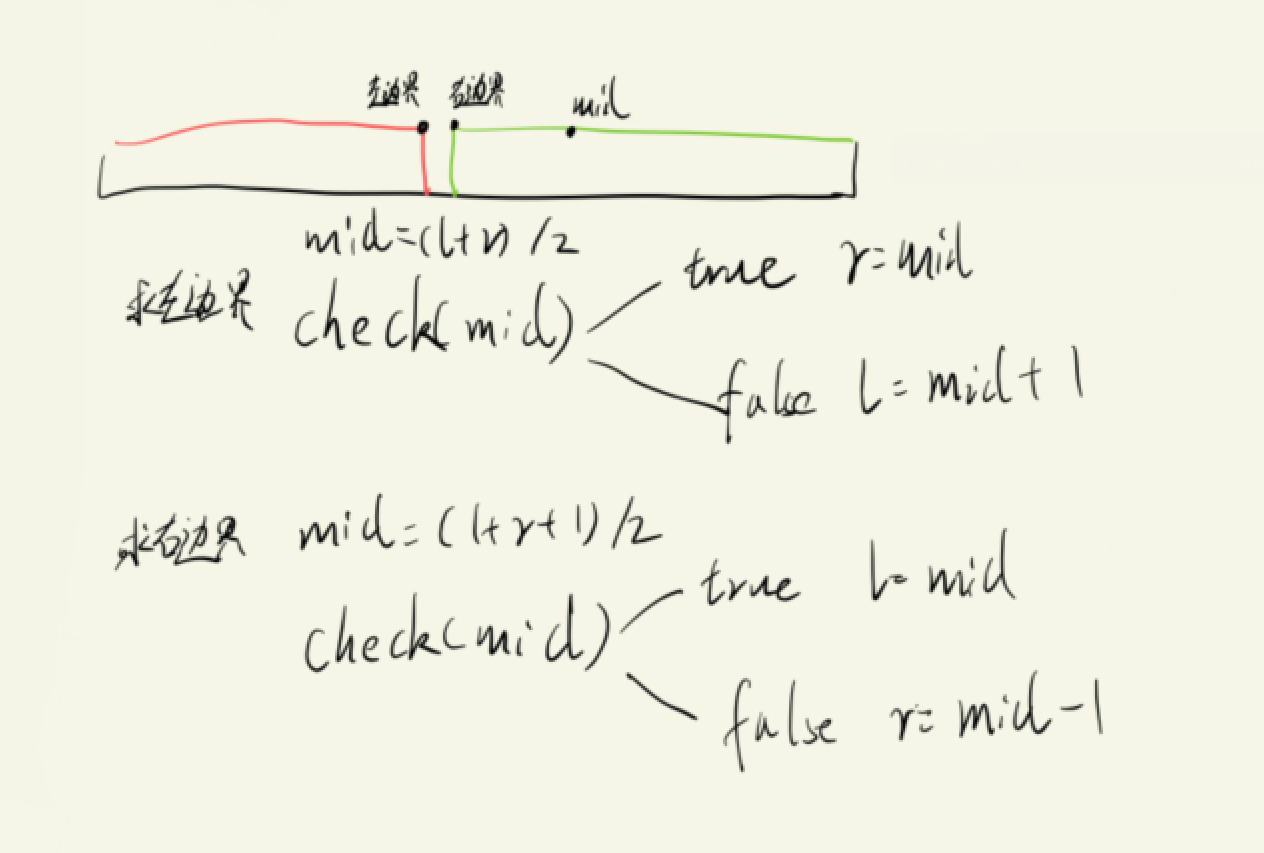 左边界 右边界 mid
mid=(l+r)/2
求左边界 check(mid)
true r=mid
false l=mid+1
求右边界 mid=(l+r+1)/2
check(mid)
true l=mid
false r=mid-1